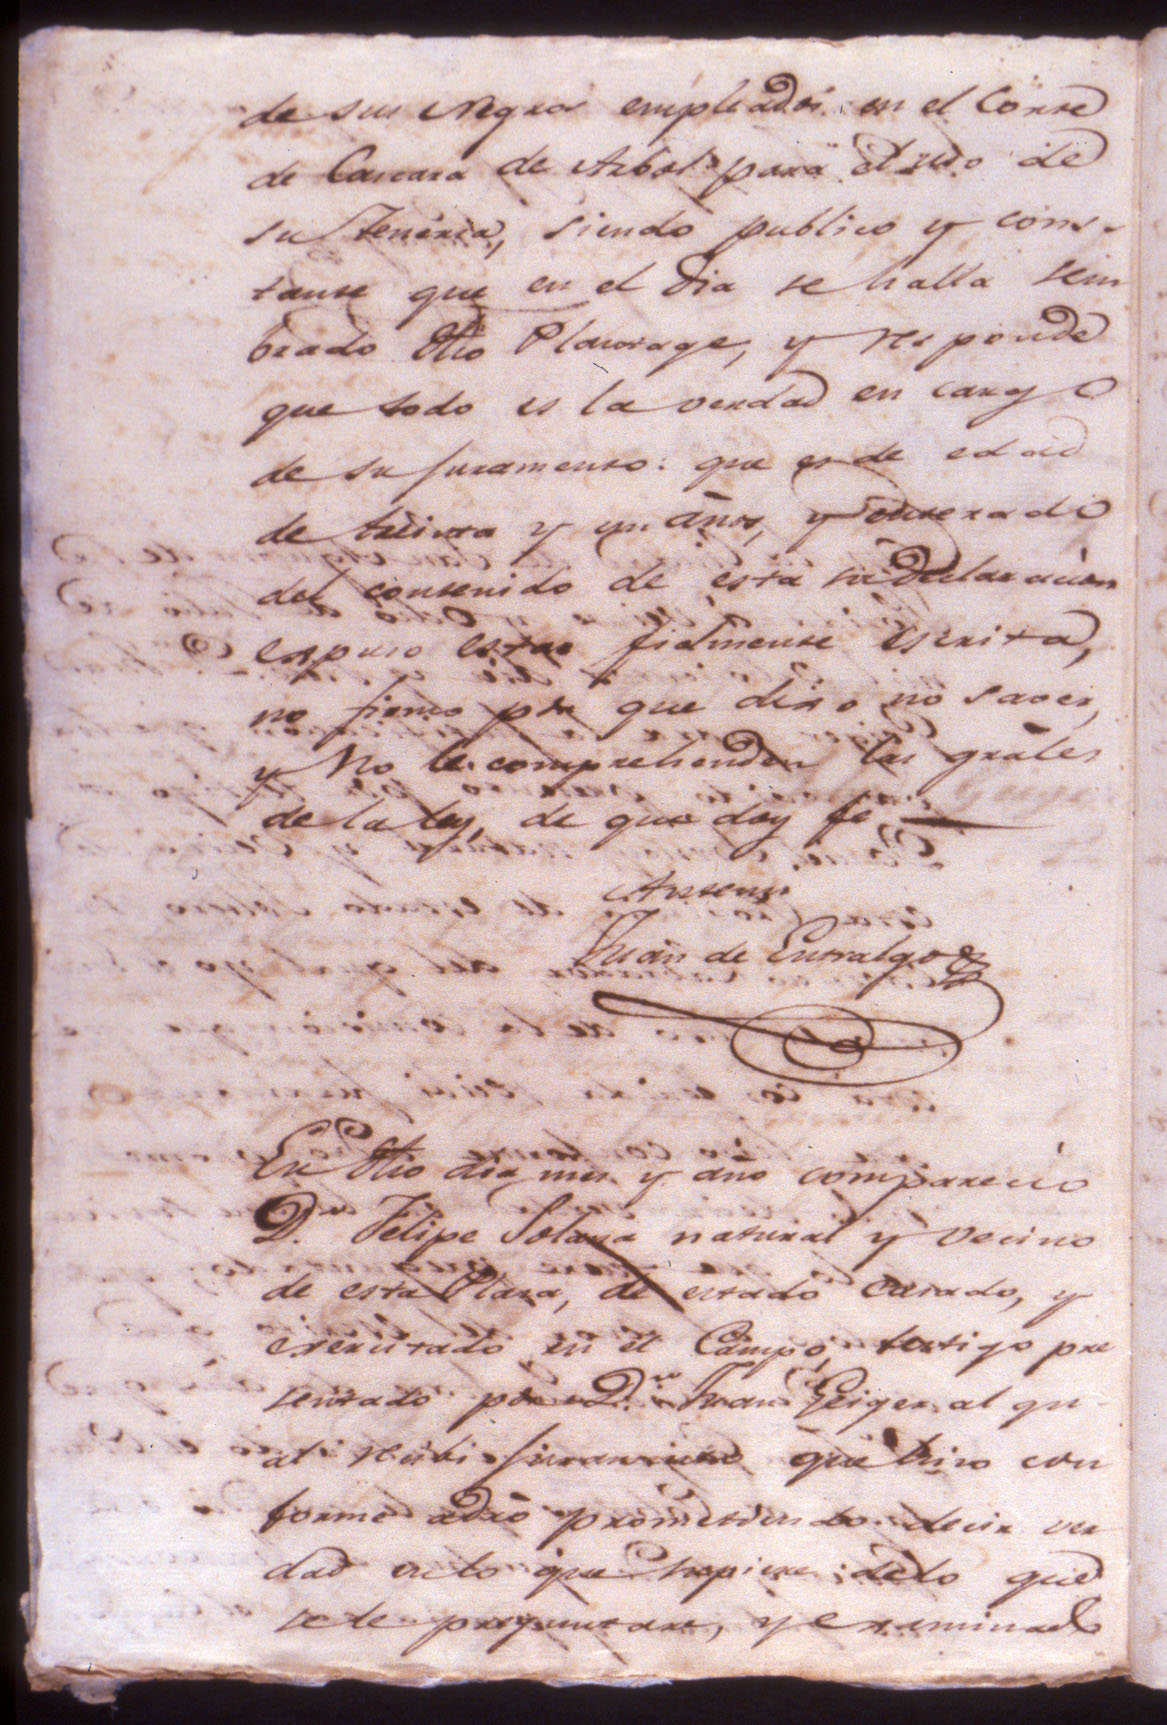 de sus Negros empleados en el Corte
de Cascara de Arbol para el uso de
su Teneria, siendo publico y cons-
tante que en el dia se halla sem
brado dho Plantage, y responde
que todo es la verdad en cargo
de su juramento: que es de edad
de treinta y un años, y enterado
del contenido de esta su declaracion
expuso estar fielmente escrita,
no firmo por que dixo no saver,
y No le comprehenden las grâles
de la ley, de que doy fe
Antemi
Juan de Entralgo
En dho dia mes y año comparecio
D. Felipe Solana natural y vecino
de esta Plaza, de estado casado, y
exercitado en el Campo, testigo pre
sentado por D.n Juan Geiger, al qu-
al recibi juramento que hizo con
forme adrô prometiendo decir ver
dad en lo que supiere delo que
se le preguntare, y examinado